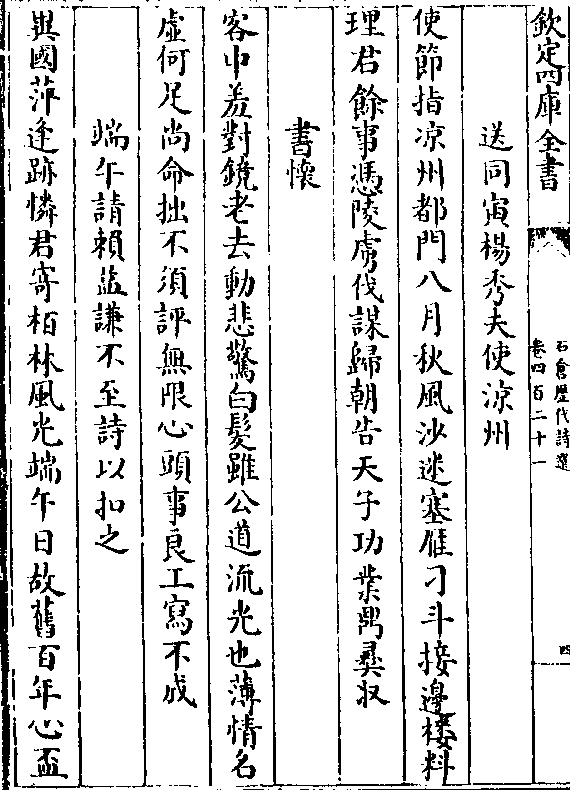 欽定四庫全書
石倉歴代詩選
卷四百二十一
四
送同寅楊秀夫使涼州
使節指凉州都門八月秋風沙迷塞雁刁斗接邊樓料
理君餘事馮陵虜伐謀歸朝告天子功業鼎彞收
書懷
客中羞對鏡老去動悲驚白髮雖公道流光也薄情名
虛何足尚命拙不須評無限心頭事良工寫不成
端午請賴益謙不至詩以扣之
與國萍逢跡憐君寄栢林風光端午日故舊百年心盃